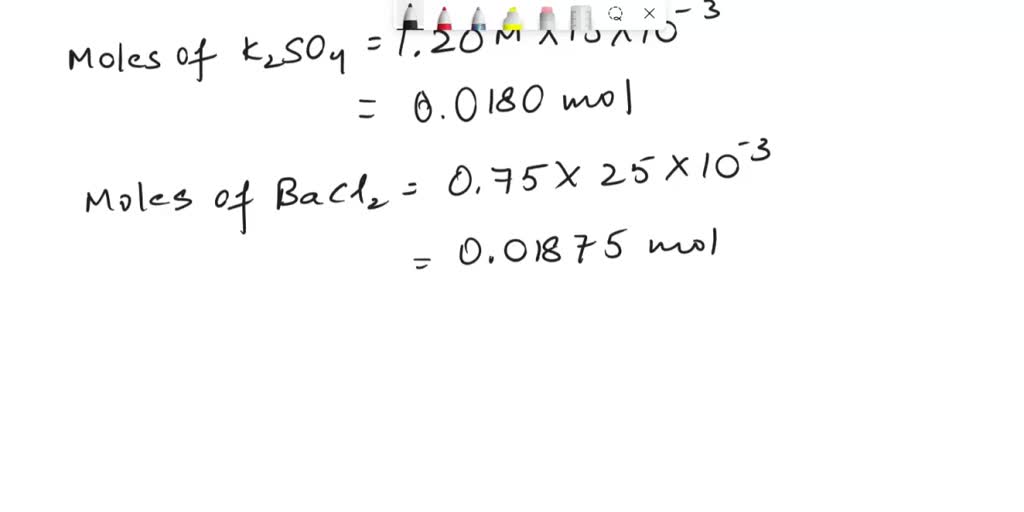 Moles of K₂SO₄ = 1.20 M × 10 × 10⁻³
= 0.0180 mol
Moles of BaCl₂ = 0.75 × 25 × 10⁻³
= 0.01875 mol